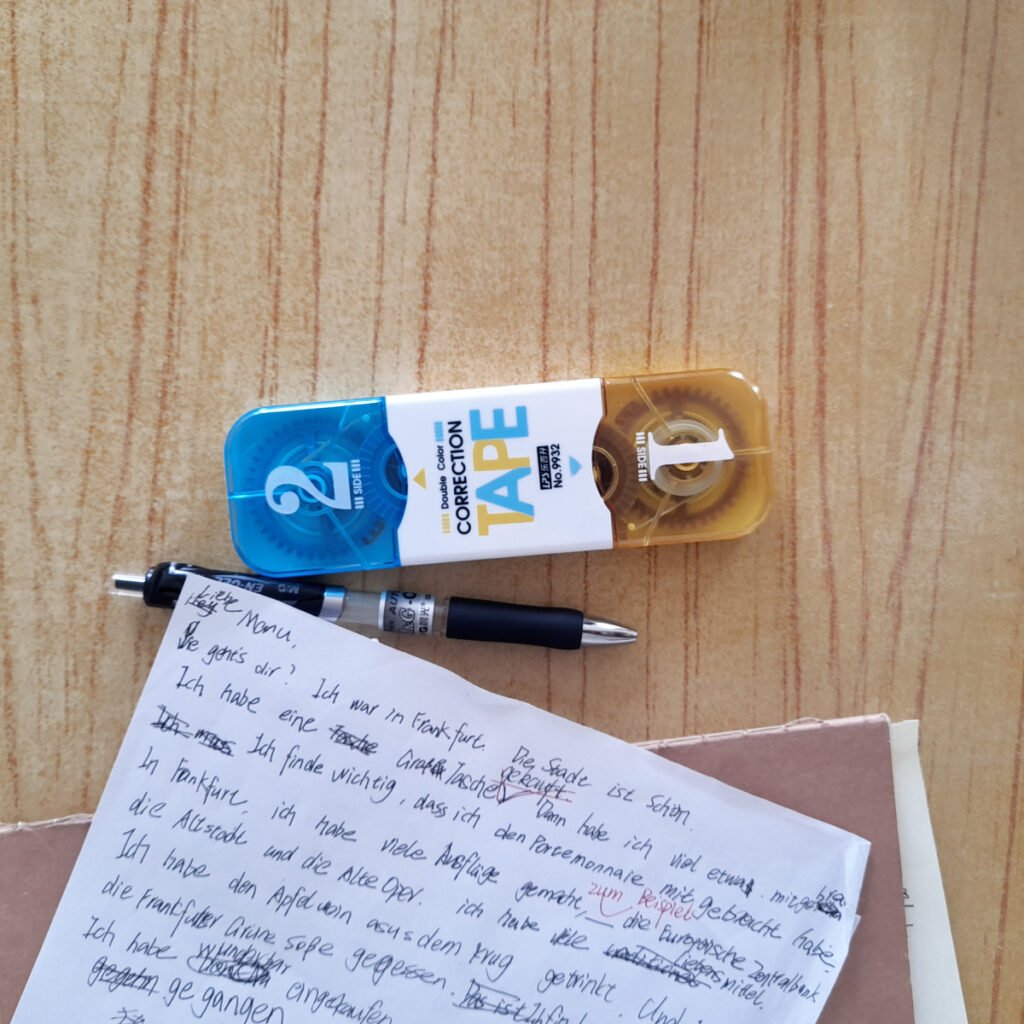 2
SIDE
Double Color
CORRECTION
TAPE
LPS 乐普升
No.9932
SIDE
1
EN-GEL
M&G
Liebe
Hey Manu,
Wie geht's dir? Ich war in Frankfurt. Die Stadt ist schön.
Ich habe eine Tasche gekauft. Dann habe ich viel etwas
Ich muss Ich finde wichtig, dass ich den Portemonnaie mitgebracht habe.
In Frankfurt, ich habe viele Ausflüge gemacht, zum Beispiel die Europäische Zentralbank
die Altstadt und die Alte Oper. ich habe viele Lebensmittel.
Ich habe den Apfelwein aus dem Krug getrinkt. Und
die Frankfurter Grüne Soße gegessen. Das ist Ich
Ich habe wunderbar eingekaufen
gegangen